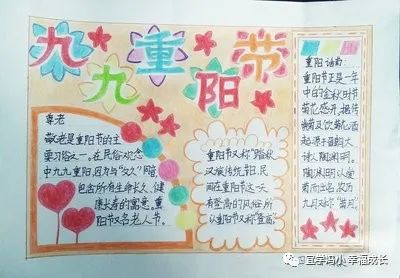 九九重阳节
敬老
敬老是重阳节的主
要习俗之一。在民俗观念
中九九重阳,因为与"久久"同音,
包含所有生命长久、健
康长寿的寓意。重
阳节又名老人节。
重阳节又称"踏秋"
汉族传统节日,民
间在重阳这一天
有登高的风俗,所
以重阳节又称"登高"
重阳诗句
重阳节正是一年
中的金秋时节
菊花盛开,据传
赏菊及饮菊花酒
起源于晋朝大
诗人陶渊明。
陶渊明以爱
菊而出名,农历
九月又称"菊月"。
宜学冯小 幸福成长